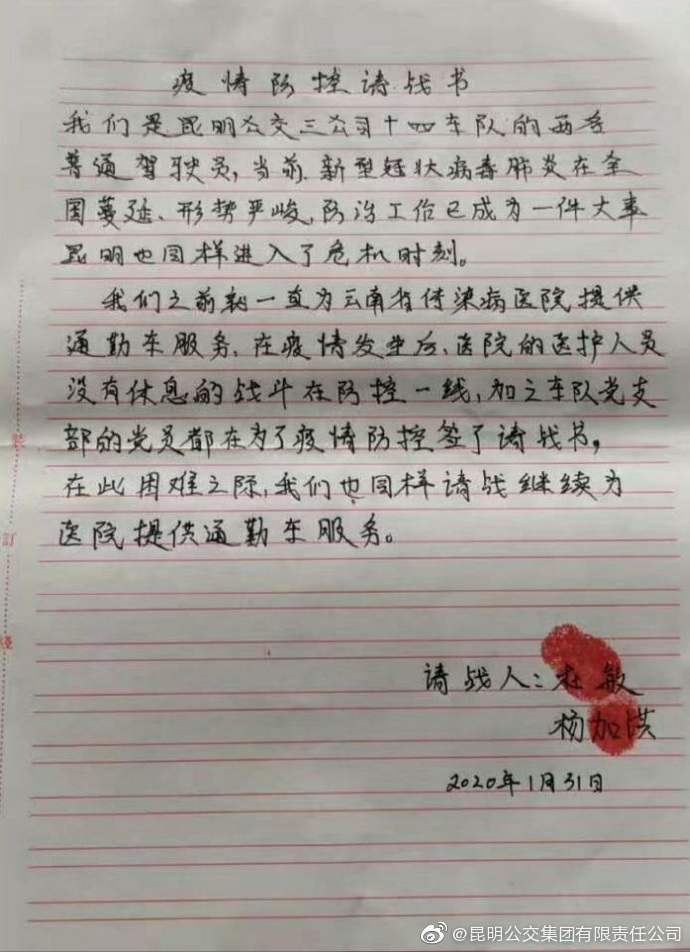 疫情防控请战书
我们是昆明公交三公司十四车队的两名
普通驾驶员,当前、新型冠状病毒肺炎在全
国蔓延、形势严峻,防治工作已成为一件大事
昆明也同样进入了危机时刻。
我们之前就一直为云南省传染病医院提供
通勤车服务,在疫情发生后,医院的医护人员
没有休息的战斗在防控一线,加之车队党支
部的党员都在为了疫情防控签了请战书,
在此困难之际,我们也同样请战继续为
医院提供通勤车服务。
请战人:杜敏
杨加洪
2020年1月31日
装
订
线
@昆明公交集团有限责任公司